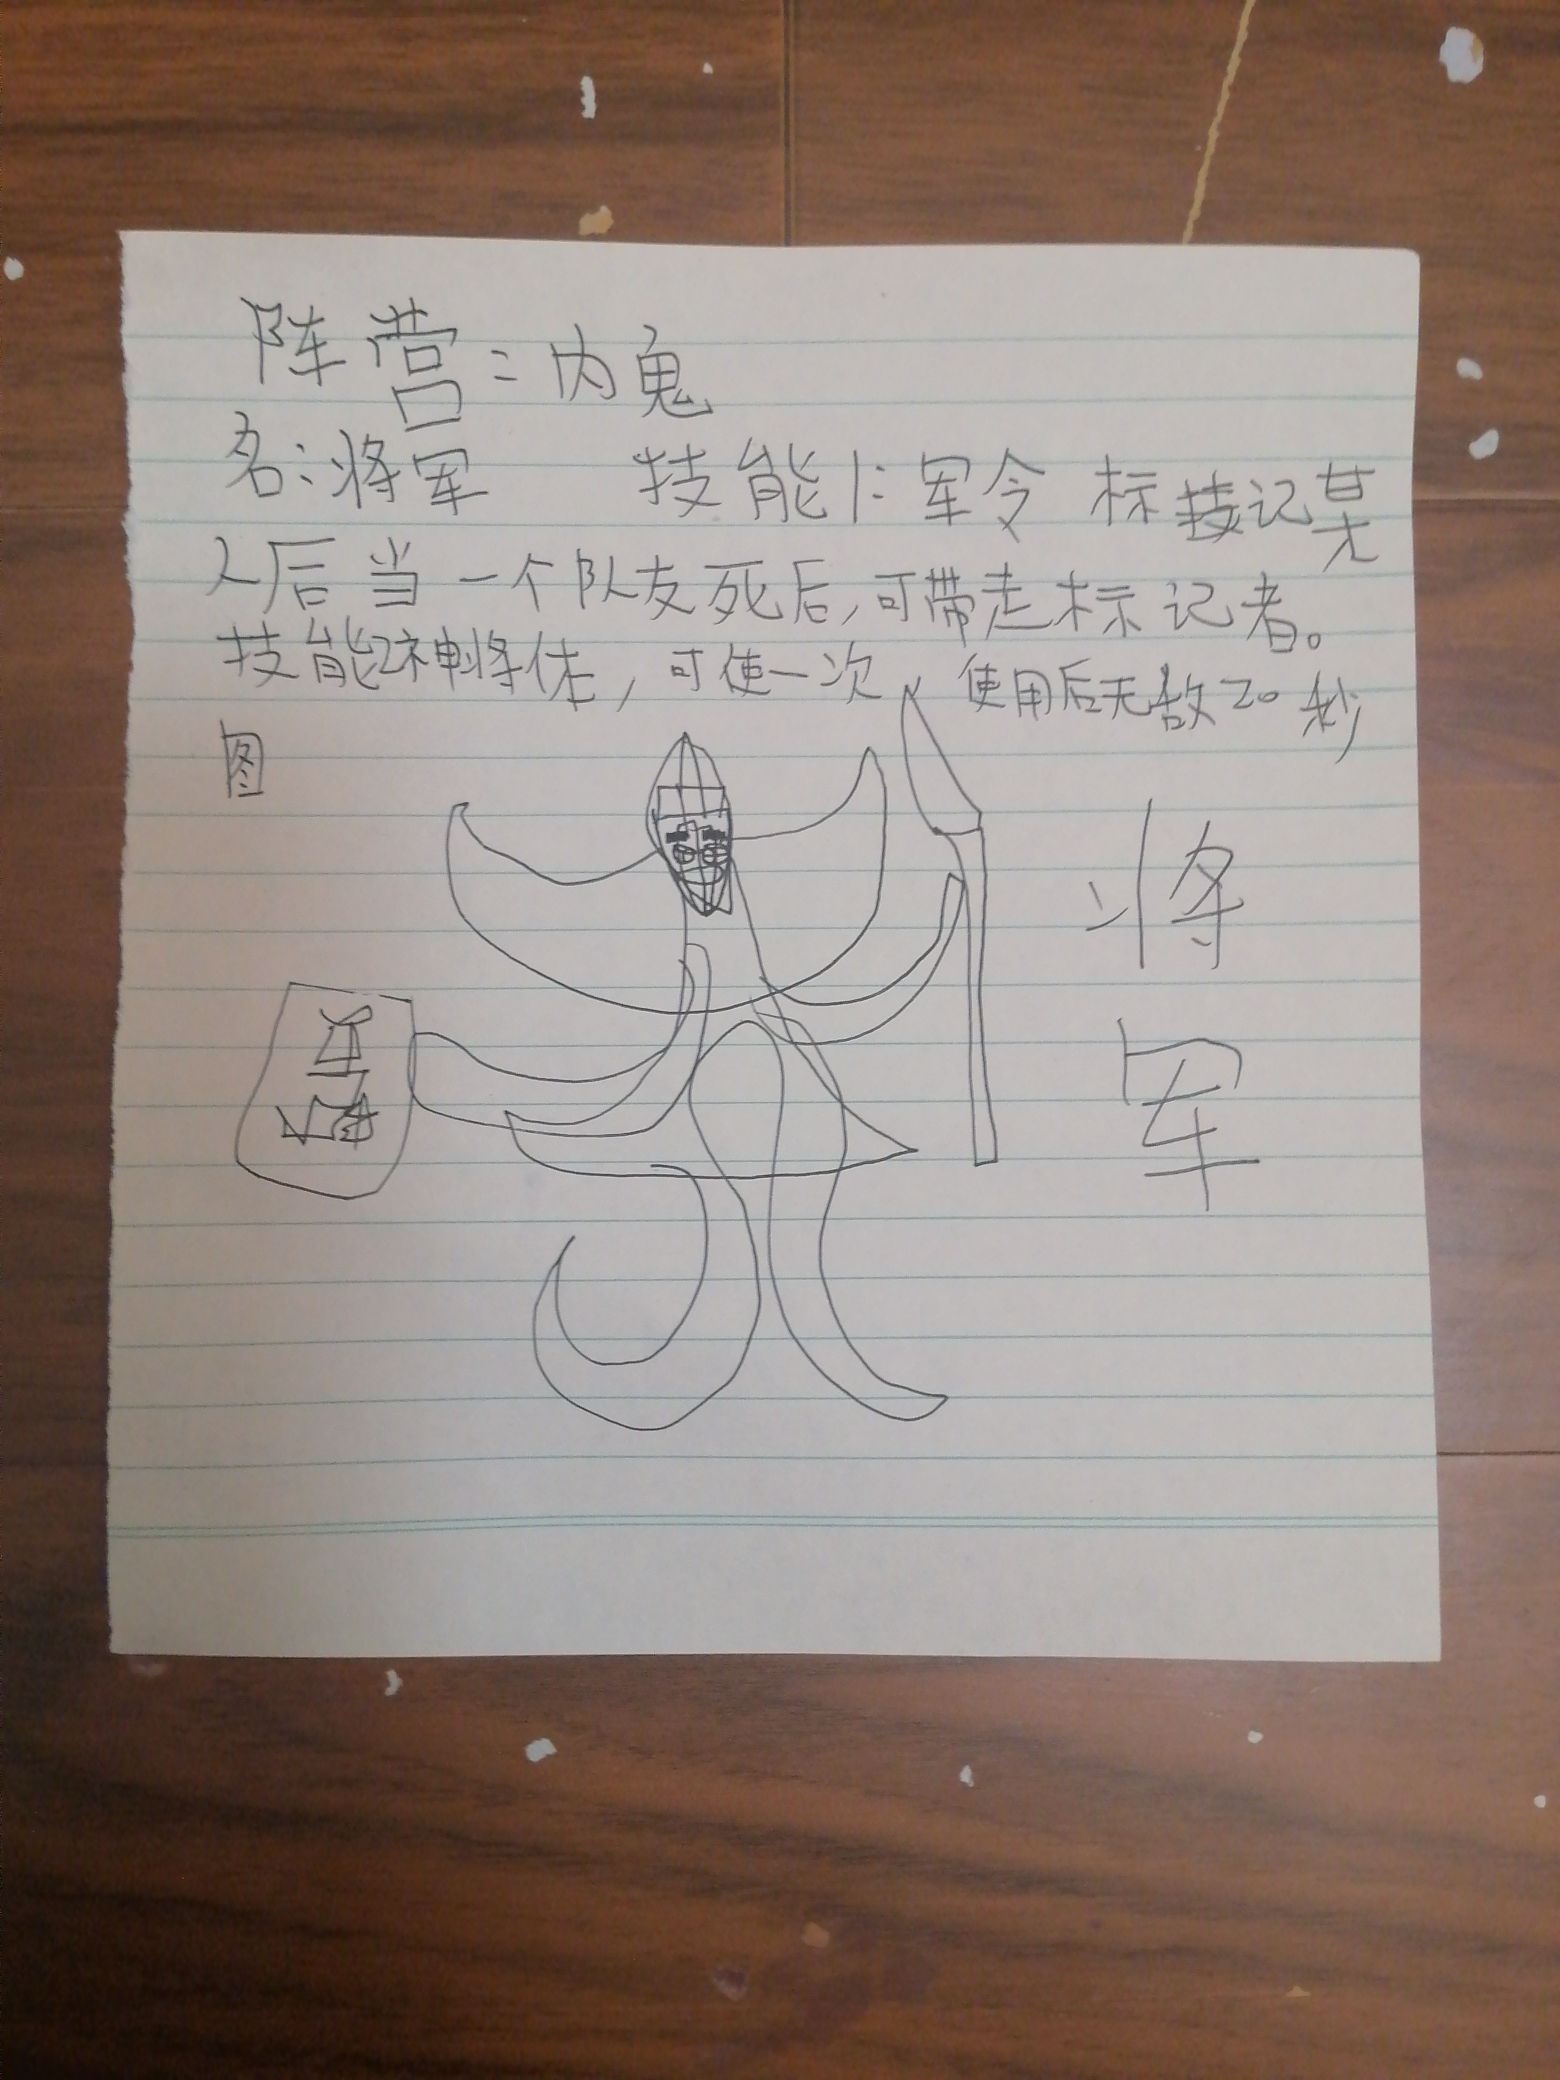 阵营：内鬼
名：将军 技能1：军令 标记某
人后当一个队友死后，可带走标记者。
技能2神将体，可使一次，使用后无敌20秒
图
将
军